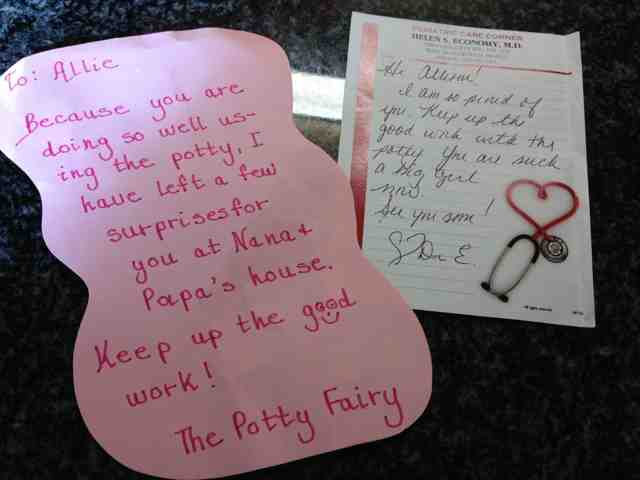 To: Allie
Because you are
doing so well us-
ing the potty, I
have left a few
surprisesfor
you at Nana +
Papa's house.
Keep up the good
work!
The Potty Fairy
PEDIATRIC CARE CORNER
HELEN S. ECONOMY, M.D.
Hi Allison!
I am so proud of
you. Keep up the
good work with the
potty. You are such
a big girl
now
See you soon!
Dr. E.
All rights reserved